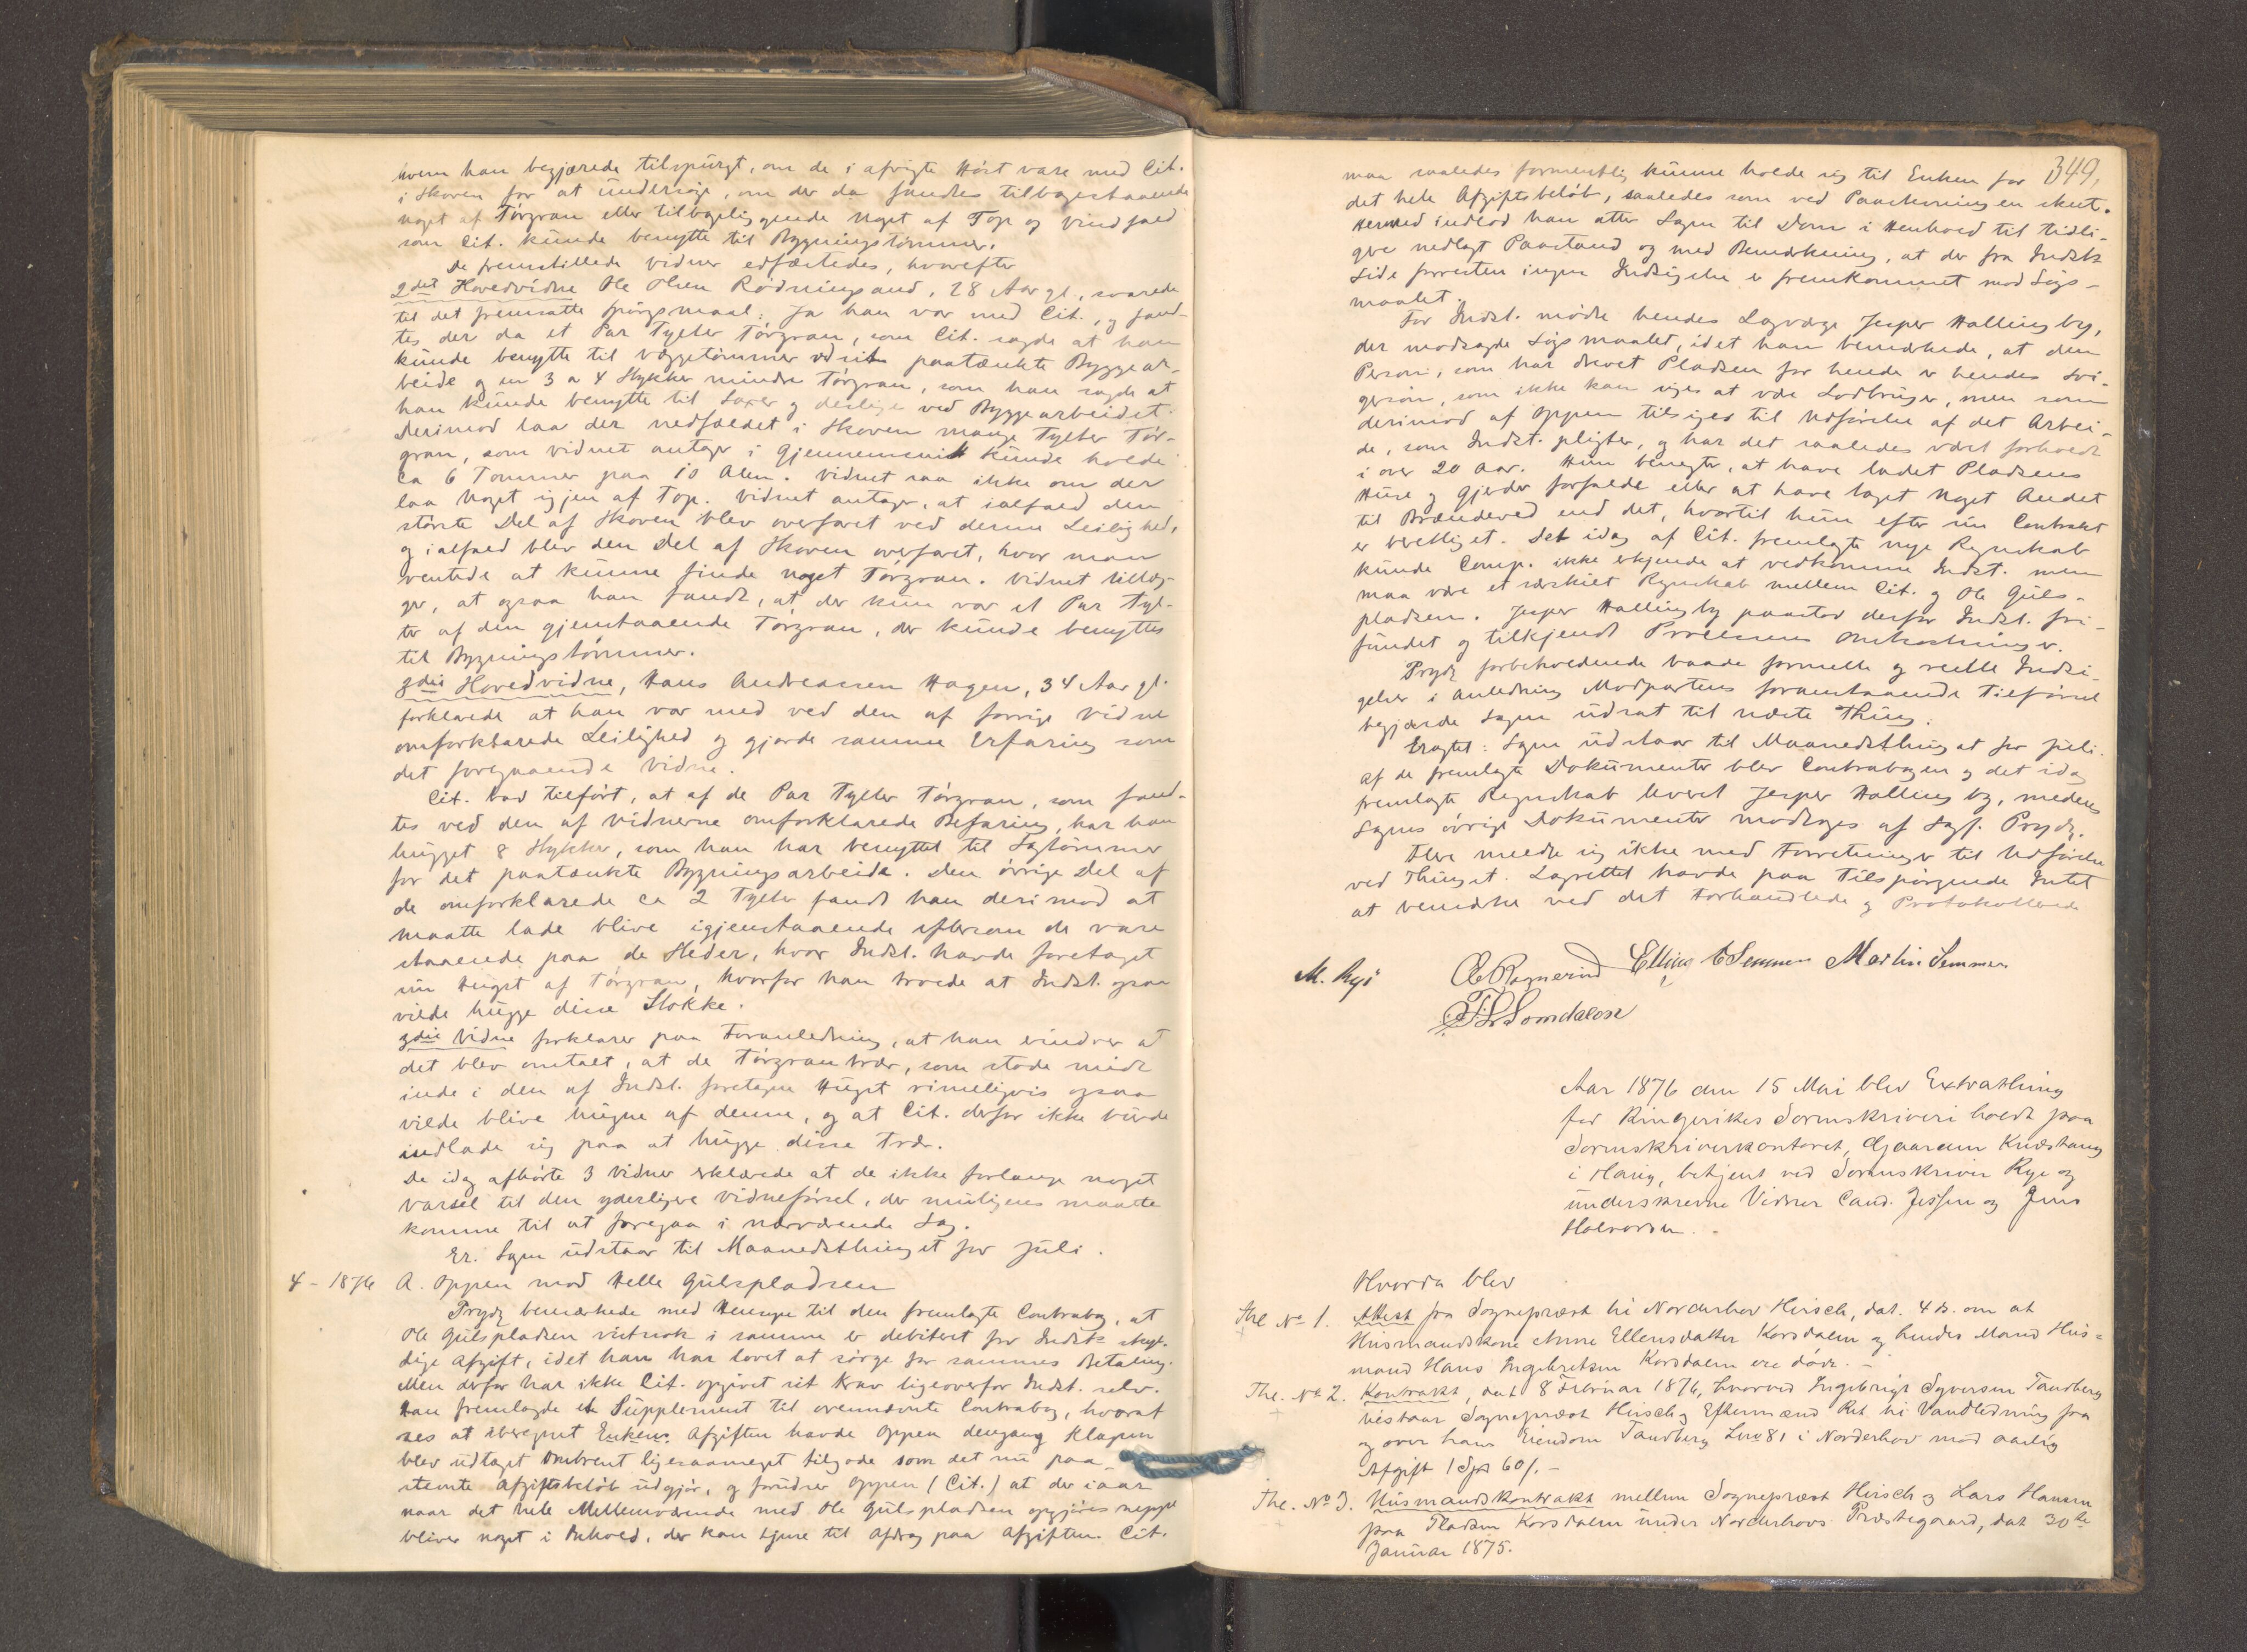 hvem han begjærede tilspurgt, om de i afvigte Høst vare med Cit.
i Skoven for at undersøge, om der da fandtes tilbagestaaende
noget af Tørgran eller tilbageliggende noget af Top og Vindfald
som Cit. kunde benytte til Bygningstømmer.
De fremstillede Vidner edfæstedes, hvorefter
2det Hovedvidne Ole Olsen Rødningsand, 28 Aar gl., svarede
til det fremsatte Spørgsmaal: Ja han var med Cit., og fand-
tes der da et Par Tylter Tørgran, som Cit. sagde at han
kunde benytte til Væggetømmer ved sit paatænkte Byggear-
beide og en 3 a 4 Stykker mindre Tørgran, som han sagde at
han kunde benytte til Saxer og deslige ved Byggearbeidet.
Derimod laa der nedfældet i Skoven mange Tylter Tør-
gran, som Vidnet antager i Gjennemsnit kunde holde
ca 6 Tommer paa 10 Alen. Vidnet saa ikke om der
laa noget igjen af Top. Vidnet antager, at ialfald den
største Del af Skoven blev overfaret ved denne Leilighed,
og ialfald blev den Del af Skoven overfaret, hvor man
ventede at kunne finde noget Tørgran. Vidnet tillæg-
ger, at ogsaa han fandt, at der kun var et Par Tyl-
ter af den gjenstaaende Tørgran, der kunde benyttes
til Bygningstømmer.
3die Hovedvidne, Hans Andreassen Hagen, 34 Aar gl.
forklarede at han var med ved den af forrige Vidne
omforklarede Leilighed og gjorde samme Erfaring som
det foregaaende Vidne.
Cit. bad tilført, at af de Par Tylter Tørgran, som fand-
tes ved den af Vidnerne omforklarede Befaring, har han
hugget 8 Stykker, som han har benyttet til Sagtømmer
for det paatænkte Bygningsarbeide. Den øvrige Del af
de omforklarede ca 2 Tylter fandt han derimod at
maatte lade blive igjenstaaende eftersom de vare
staaende paa de Steder, hvor Indst. havde foretaget
sin Hugst af Tørgran, hvorfor han troede at Indst. ogsaa
vilde hugge disse Stokke.
3die Vidne forklarer paa Foranledning, at han erindrer at
det blev omtalt, at de Tørgrantrær, som stode midt
inde i den af Indst. foretagne Hugst rimeligvis ogsaa
vilde blive hugne af denne, og at Cit. derfor ikke burde
indlade sig paa at hugge disse Trær.
De idag afhørte 3 Vidner erklærede at de ikke forlange noget
Varsel til den yderligere Vidneførsel, der muligens maatte
komme til at foregaa i nærværende Sag.
Er. Sagen udstaar til Maanedsthinget for Juli.
4 - 1876 A. Oppen mod Helle Gulspladsen
Prydz bemærkede med Hensyn til den fremlagte Contrabog, at
Ole Gulspladsen vistnok i samme er debiteret for Indsts skyl-
dige Afgift, idet han har lovet at sørge for sammes Betaling.
Men derfor har ikke Cit. opgivet sit Krav ligeoverfor Indst. selv.
Han fremlagde et Supplement til ovennævnte Contrabog, hvoraf
sees at iberegnet Enkens Afgiften havde Oppen dengang Klagen
blev udtaget omtrent ligesaameget tilgode som det nu paa-
stevnte Afgiftsbeløb udgjør, og forudser Oppen (Cit.) at der iaar
naar det hele Mellemværende med Ole Gulspladsen opgjøres neppe
bliver noget i Behold, der kan tjene til Afdrag paa Afgiften. Cit.
349,
maa saaledes formentlig kunne holde sig til Enken for
det hele Afgiftsbeløb, saaledes som ved Paastevningen skeet.
Hermed indlod han atter Sagen til Dom i Henhold til tidli-
gere nedlagt Paastand og med Bemærkning, at der fra Indsts
Side forresten ingen Indsigelse er fremkommet mod Søgs-
maalet.
For Indst. mødte hendes Lagværge Jesper Hallingby,
der modsagde Søgsmaalet, idet han bemærkede, at den
Person, som har drevet Pladsen for hende er hendes Svi-
gersøn, som ikke kan siges at være Lodbruger, men som
derimod af Oppen tilsiges til Udførelse af det Arbei-
de, som Indst. pligter, og har det saaledes vært forholdt
i over 20 Aar. Hun benegter, at have ladet Pladsens
Huse og Gjerder forfalde eller at have taget noget Andet
til Brændeved end det, hvortil hun efter sin Contrakt
er berettiget. Det idag af Cit. fremlagte nye Regnskab
kunde Comp. ikke erkjende at vedkomme Indst. men
maa være et særskilt Regnskab mellem Cit. og Ole Guls-
pladsen. Jesper Hallingby paastod derfor Indst. fri-
fundet og tilkjendt Processens Omkostninger.
Prydz forbeholdende baade formelle og reelle Indsi-
gelser i Anledning Modpartens foranstaaende Tilførsel
begjærede Sagen udsat til næste Thing.
Eragtet: Sagen udstaar til Maanedsthinget for Juli.
Af de fremlagte Dokumenter blev Contrabogen og det idag
fremlagte Regnskab leveret Jesper Hallingby, medens
Sagens øvrige Dokumenter modtoges af Sagf. Prydz.
Flere meldte sig ikke med Forretninger til Udførelse
ved Thinget. Lagrettet havde paa Tilspørgende Intet
at bemærke ved det Forhandlede og Protokollerede
M. Rye Elling E Semmen Martin Semmen
Aar 1876 den 15 Mai blev Extrathing
for Ringerikes Sorenskriveri holdt paa
Sorenskriverkontoret, Gaarden Knestang
i Haug, betjent ved Sorenskriver Rye og
underskrevne Vidner Cand. Jessen og Jens
Halvorsen. -
Hvorda blev
Thl. No 1. Attest fra Sogneprest til Norderhov Hirsch, dat. 4 ds. om at
Husmandskone Anne Ellensdatter Korsdalen og hendes Mand Hus=
mand Hans Ingebretsen Korsdalen ere døde. -
Thl. No 2. Kontrakt, dat 8 Februar 1876, hvorved Ingebrigt Syversen Tandberg
tilstaar Sogneprest Hirsch og Eftermænd Ret til Vandledning fra
og over hans Eiendom Tandberg Lno 81 i Norderhov mod aarlig
Afgift 1 Spd 60 ß. -
Thl. No 3. Husmandskontrakt mellem Sogneprest Hirsch og Lars Hansen
paa Pladsen Korsdalen under Norderhovs Præstegaard, dat 30te
Januar 1875.